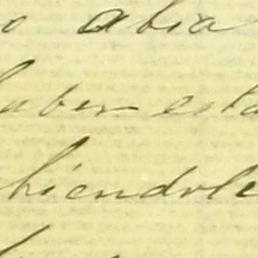 o abia
haber esta
hiendole